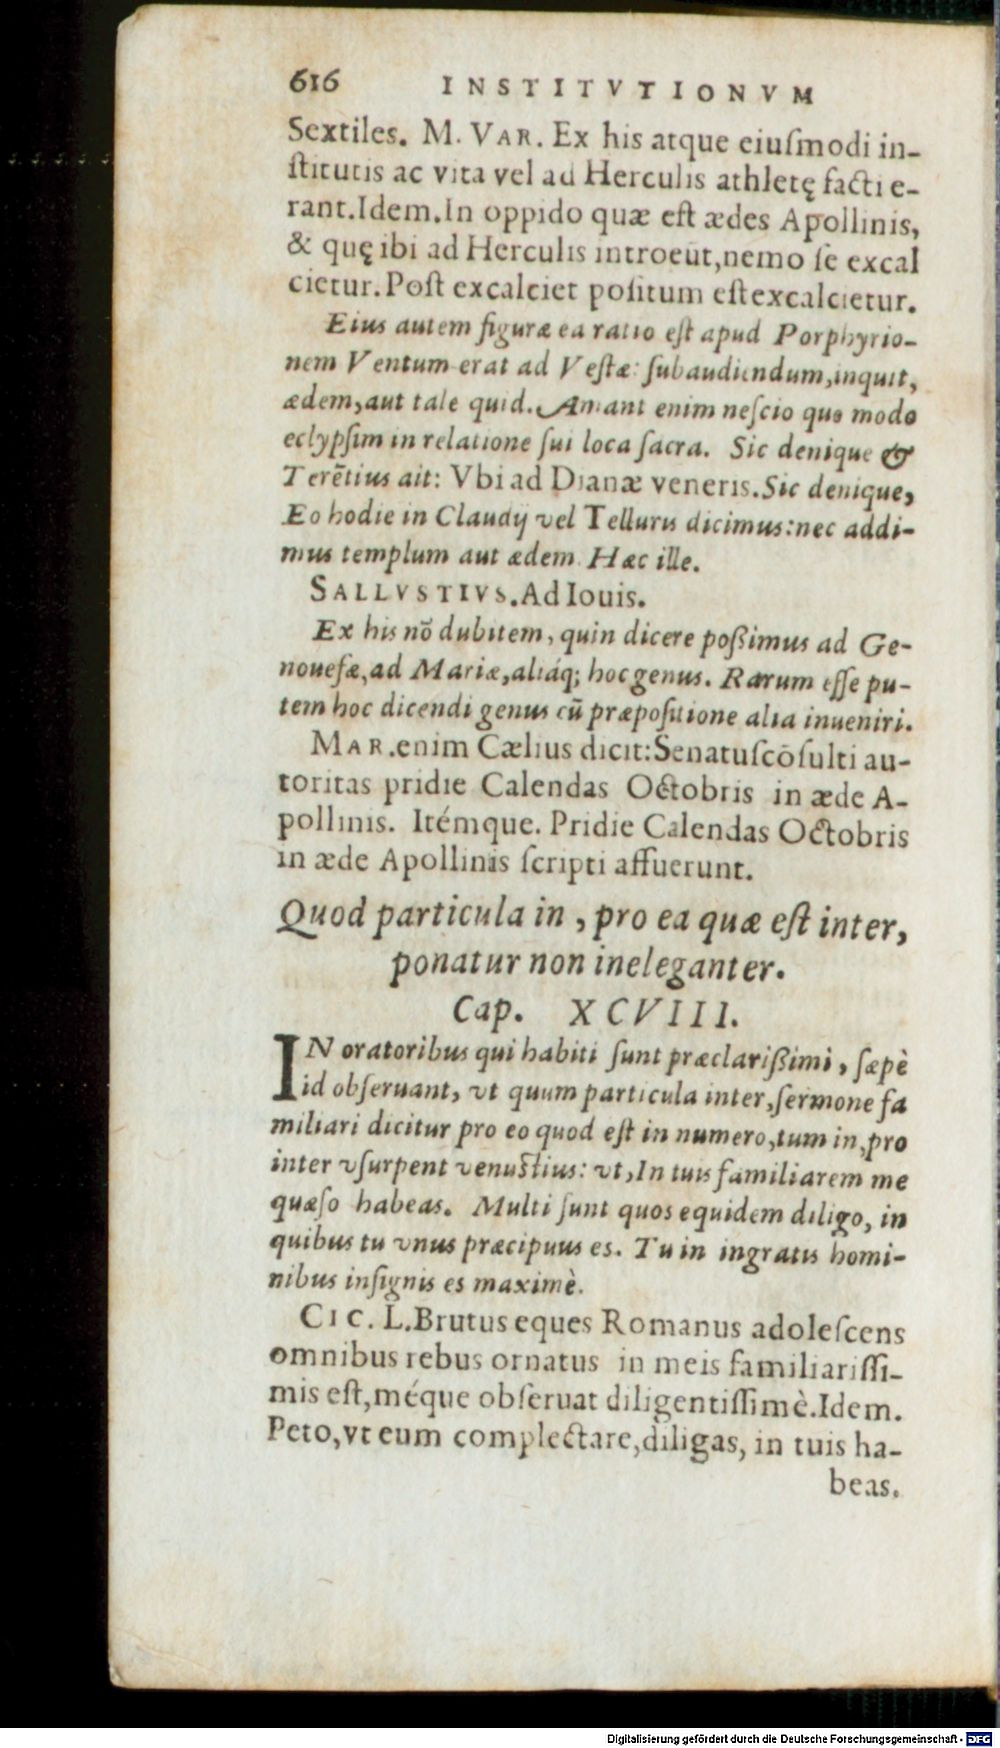 616 INSTITVTIONVM
Sextiles. M. VAR. Ex his atque eiuſmodi in-
ſtitutis ac vita vel ad Herculis athletę facti e-
rant. Idem. In oppido quæ eſt ædes Apollinis,
& quę ibi ad Herculis introeūt, nemo ſe excal
cietur. Poſt excalciet poſitum eſt excalcietur.
Eius autem figuræ ea ratio eſt apud Porphyrio-
nem Ventum erat ad Veſtæ: ſubaudiendum, inquit,
ædem, aut tale quid. Amant enim neſcio quo modo
eclypſim in relatione ſui loca ſacra. Sic denique &
Terētius ait: Vbi ad Dianæ veneris. Sic denique,
Eo hodie in Claudij vel Telluris dicimus: nec addi-
mus templum aut ædem. Hæc ille.
SALLVSTIVS. Ad Iouis.
Ex his nō dubitem, quin dicere poßimus ad Ge-
nouefæ, ad Mariæ, aliáq; hoc genus. Rarum eſſe pu-
tem hoc dicendi genus cū præpoſitione alia inueniri.
MAR. enim Cælius dicit: Senatuſcōſulti au-
toritas pridie Calendas Octobris in æde A-
pollinis. Itémque. Pridie Calendas Octobris
in æde Apollinis ſcripti affuerunt.
Quod particula in, pro ea quæ eſt inter,
ponatur non ineleganter.
Cap. XCVIII.
IN oratoribus qui habiti ſunt præclarißimi, ſæpè
id obſeruant, vt quum particula inter, ſermone fa
miliari dicitur pro eo quod eſt in numero, tum in, pro
inter vſurpent venuſtius: vt, In tuis familiarem me
quæſo habeas. Multi ſunt quos equidem diligo, in
quibus tu vnus præcipuus es. Tu in ingratis homi-
nibus inſignis es maximè.
CIC. L. Brutus eques Romanus adoleſcens
omnibus rebus ornatus in meis familiariſſi-
mis eſt, méque obſeruat diligentiſſimè. Idem.
Peto, vt eum complectare, diligas, in tuis ha-
beas.
Digitalisierung gefördert durch die Deutsche Forschungsgemeinschaft - DFG